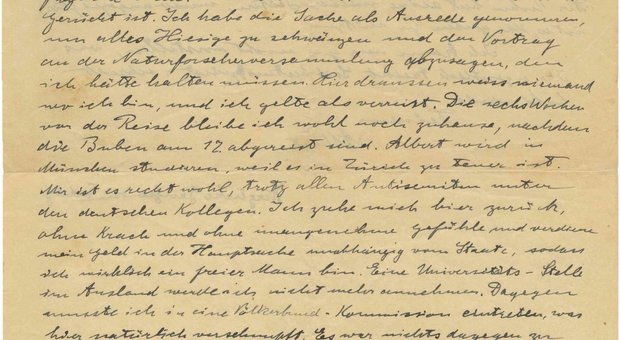 gerückt ist. Ich habe die Sache als Ausrede genommen,
um alles Hiesige zu schwänzen und den Vortrag
an der Naturforscherversammlung abzusagen, den
ich hätte halten müssen. Hierdraussen weiss niemand
wo ich bin, und ich gelte als verreist. Die sechs Wochen
vor der Reise bleibe ich wohl noch zuhause, nachdem
die Buben am 17. abgereist sind. Albert wird in
München studieren, weil es in Zürich zu teuer ist.
Mir ist es recht wohl, trotz allen Antisemiten unter
den deutschen Kollegen. Ich ziehe mich hier zurück,
ohne Krach und ohne unangenehme Gefühle und verdiene
mein Geld in der Hauptsache unabhängig vom Staate, sodass
ich wirklich ein freier Mann bin. Eine Universitäts-Stelle
im Ausland werde ich nicht mehr annehmen. Dagegen
musste ich in eine Völkerbund-Kommission eintreten, was
hier natürlich verschnupft. Es war nichts dagegen zu